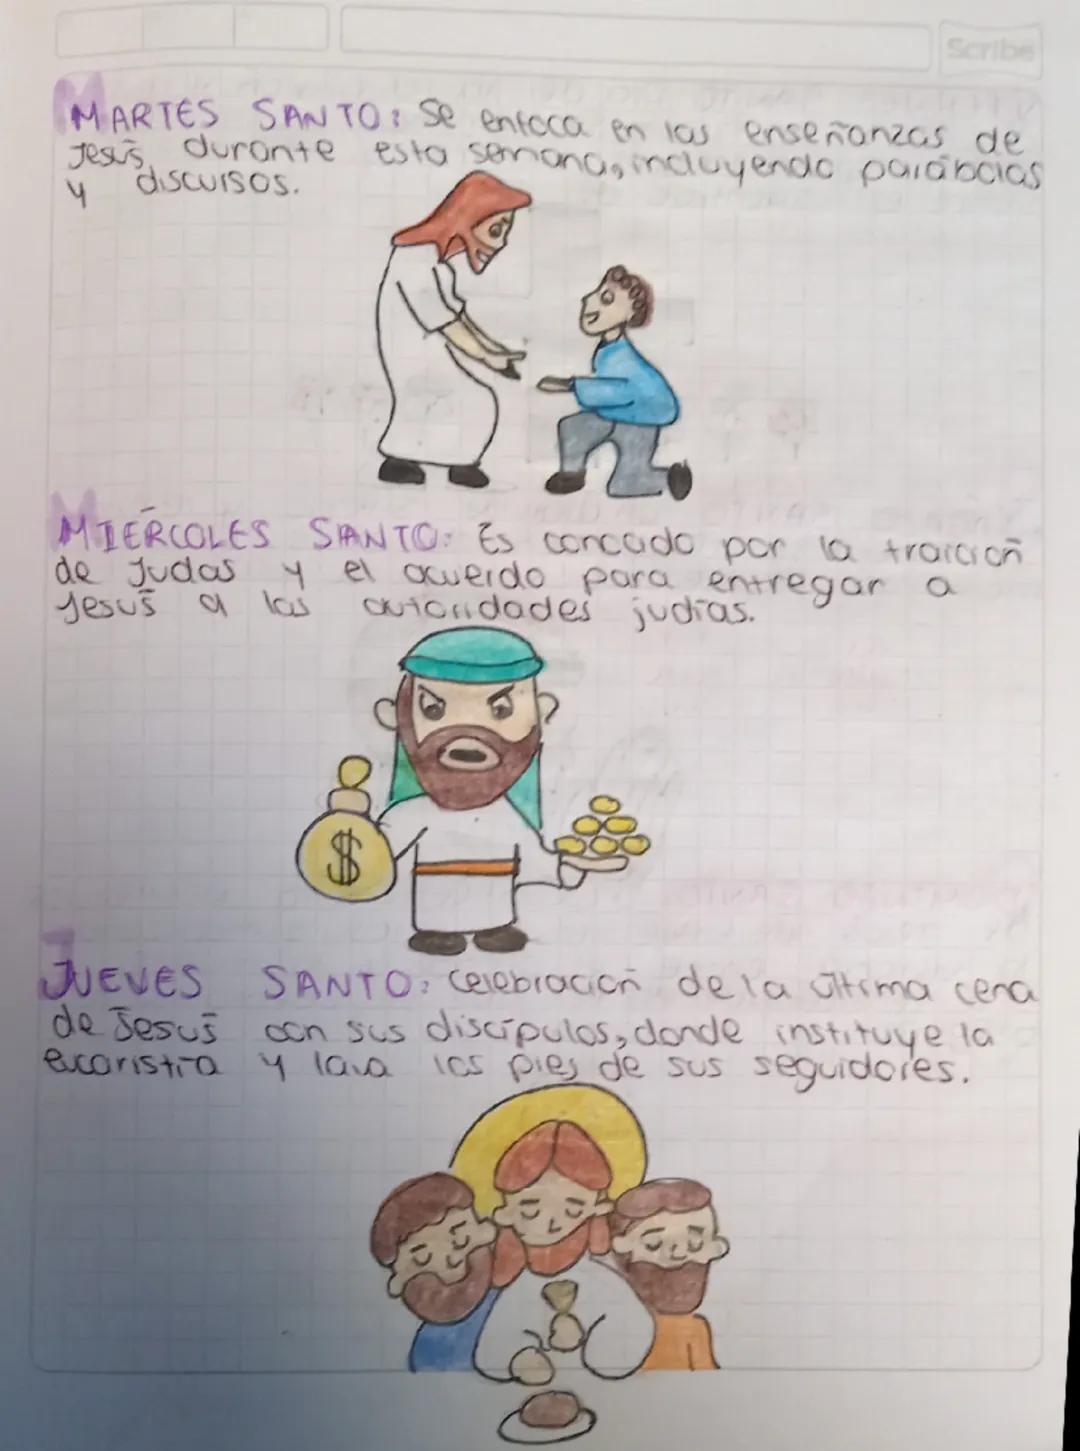 Scribe
MARTES SANTO: Se enfoca en las enseñanzas de
Jesús, durante esta semana, incluyendo parábolas
y discursos.
MIÉRCOLES SANTO: Es conocido por la traición
de Judas y el acuerdo para entregar a
Jesús a las autoridades judías.
$
JUEVES SANTO: Celebración de la última cena
de Jesús con sus discípulos, donde instituye la
eucaristía y lava los pies de sus seguidores.